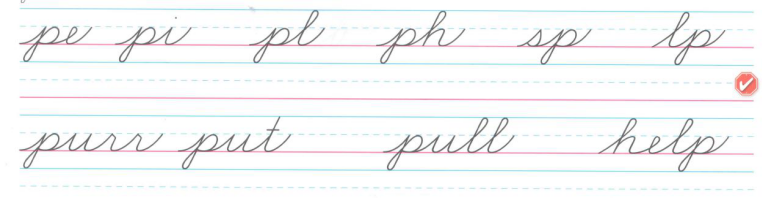 pe pi pl ph sp lp
purr put pull help